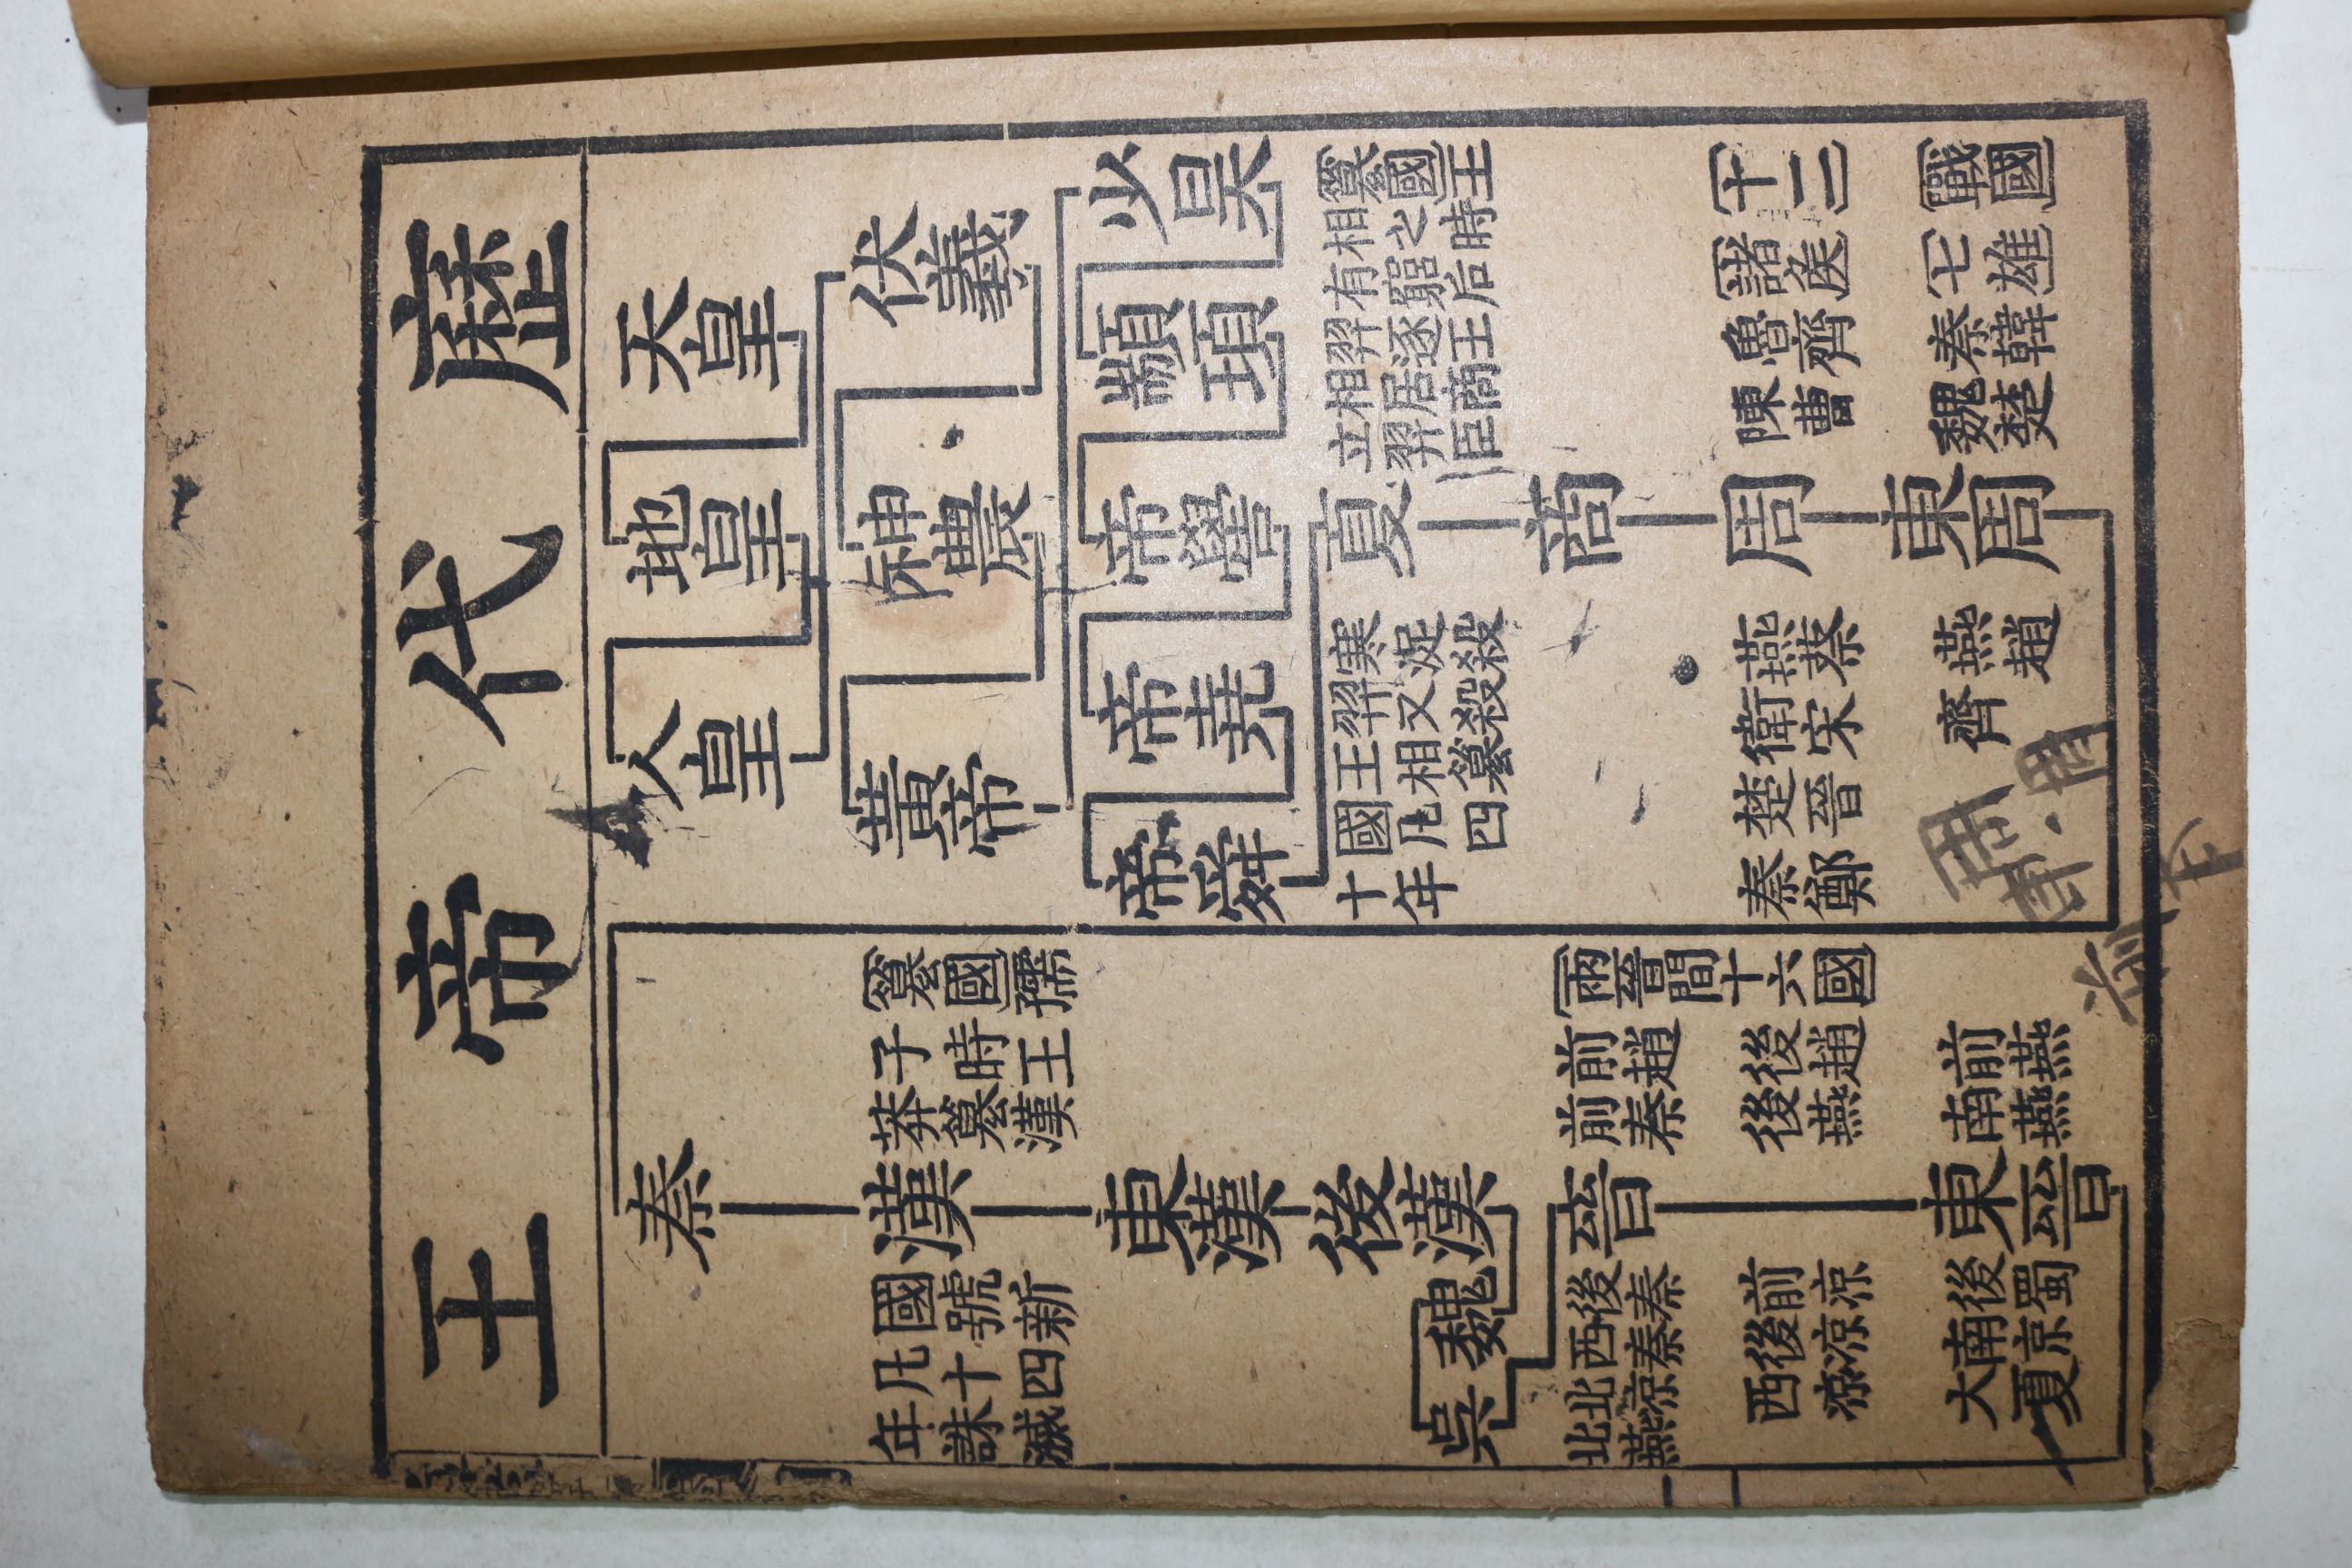 歷代帝王
天皇
地皇
人皇
伏羲
神農
黃帝
少昊
顓頊
帝嚳
帝堯
帝舜
夏
篡國王
相之時
有窮后
羿逐王
相居商
立羿臣
寒浞殺
羿又殺
王相篡
國凡四
十年
商
周
十二
諸侯
魯齊
陳曹
燕蔡
衛宋
楚晉
秦鄭
東周
戰國
七雄
秦韓
魏楚
燕趙
齊
秦
漢
篡國孺
子時王
莽篡漢
國號新
凡十四
年誅滅
東漢
後漢
魏
吳
晉
兩晉間十六國
前趙 後趙 前燕
前秦 後燕 南燕
後秦 前涼 後蜀
西秦 後涼 南涼
北涼 西涼 大夏
北燕
東晉
周
周
前